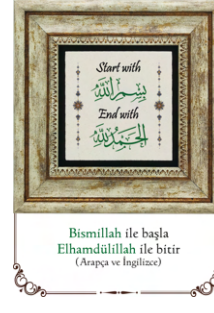 Start with
بسم الله
End with
الحمد لله
Bismillah ile başla
Elhamdülillah ile bitir
(Arapça ve İngilizce)